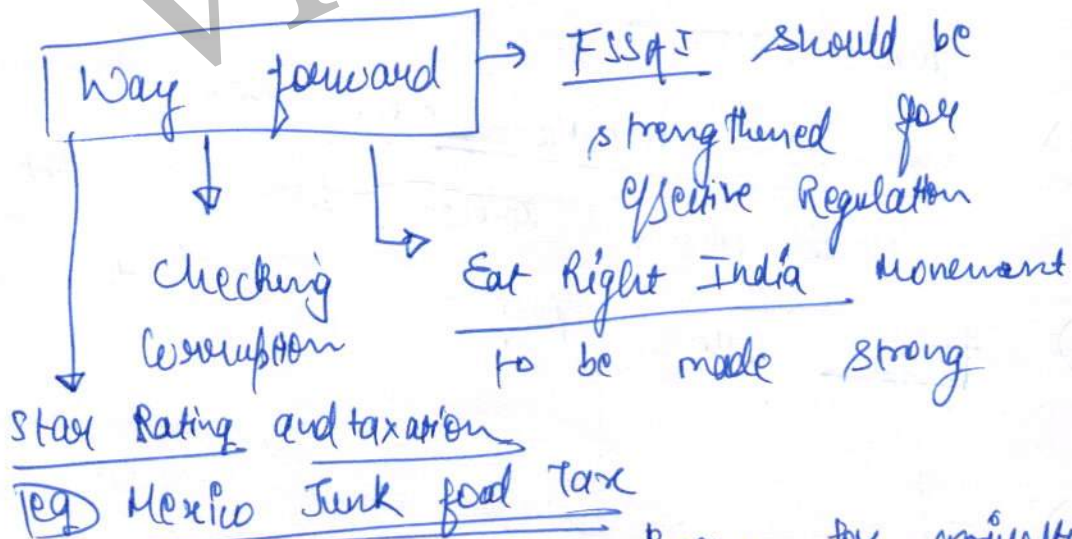 Way forward → FSSAI should be
strengthened for
effective Regulation
Checking
Corruption
Eat Right India Movement
to be made strong
Star Rating and taxation
eg Mexico Junk food Tax